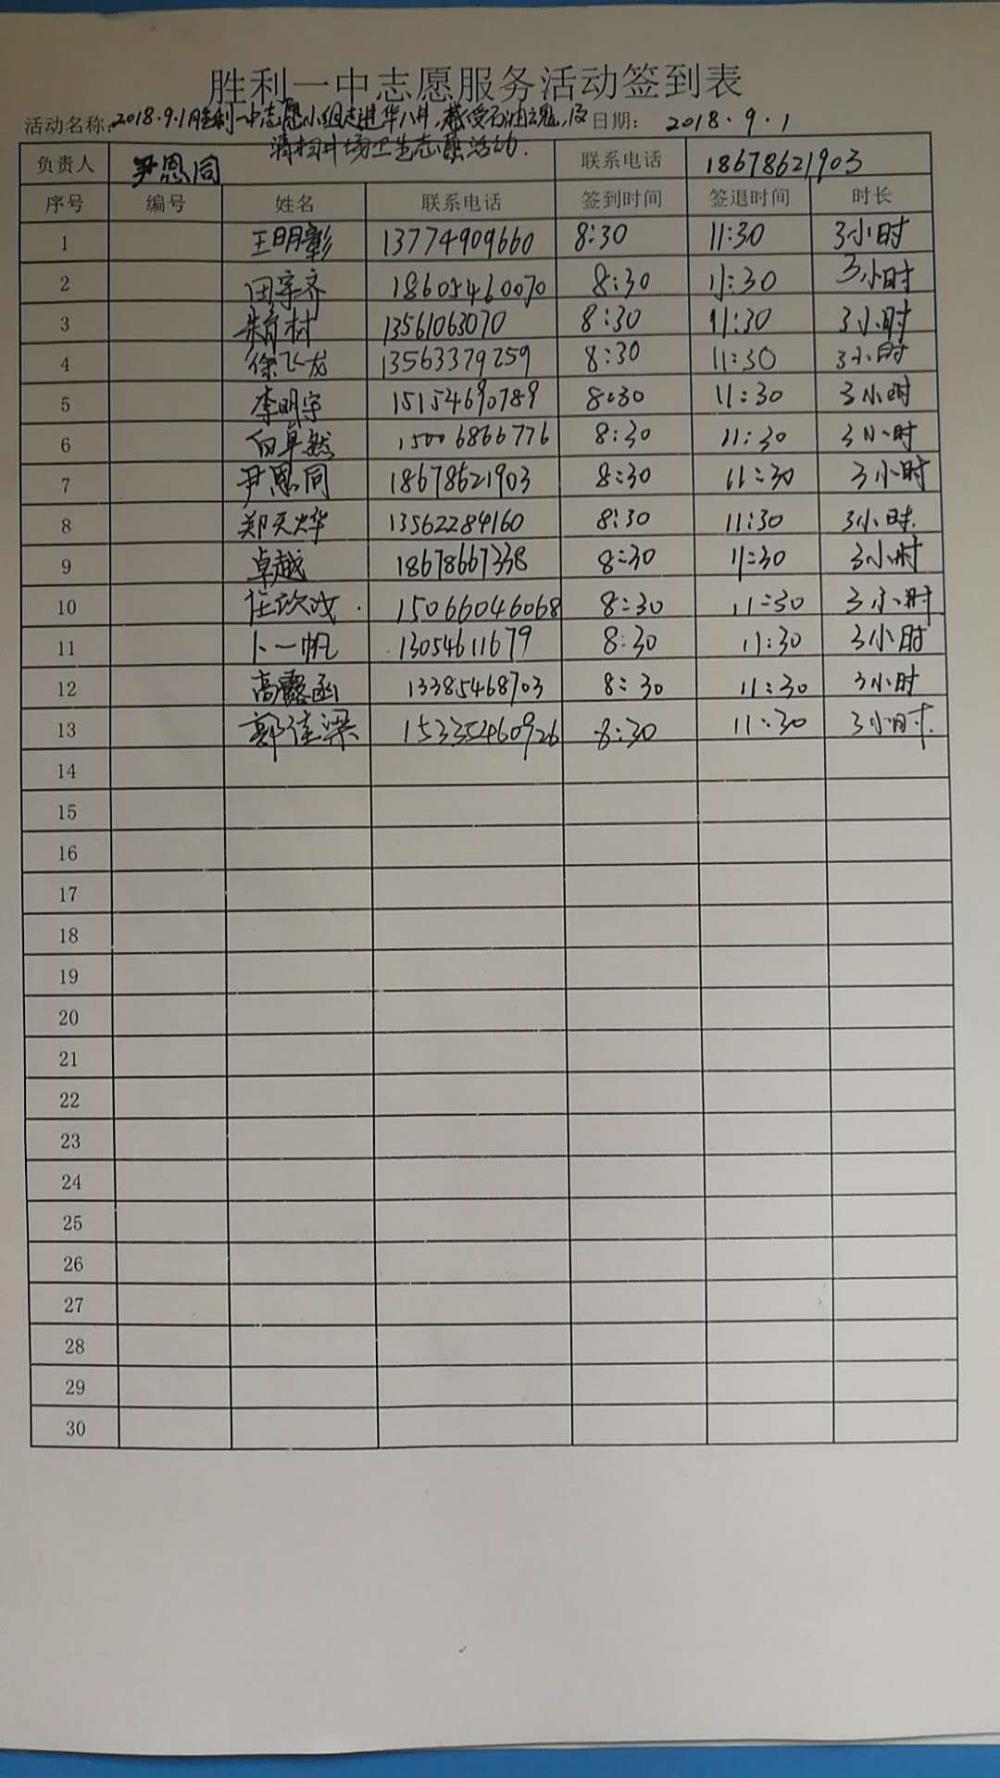 胜利一中志愿服务活动签到表
活动名称:2018.9.1胜利一中志愿小组走进华八井,感受石油之魂,及 日期: 2018.9.1
清扫井场卫生志愿活动.
负责人 尹恩同 联系电话 18678621903
序号 编号 姓名 联系电话 签到时间 签退时间 时长
1 王明彰 13774909660 8:30 11:30 3小时
2 田宇齐 18605460070 8:30 11:30 3小时
3 朱育村 13561063070 8:30 11:30 3小时
4 徐飞龙 13563379259 8:30 11:30 3小时
5 李明宇 15154690789 8:30 11:30 3小时
6 向卓然 15006866776 8:30 11:30 3小时
7 尹恩同 18678621903 8:30 11:30 3小时
8 郑天烨 13562284160 8:30 11:30 3小时.
9 卓越 18678667338 8:30 11:30 3小时
10 任 15066046068 8:30 11:30 3小时
11 卜一帆 13054611679 8:30 11:30 3小时
12 高露函 13385468703 8:30 11:30 3小时
13 郭佳梁 15335460926 8:30 11:30 3小时.
14
15
16
17
18
19
20
21
22
23
24
25
26
27
28
29
30